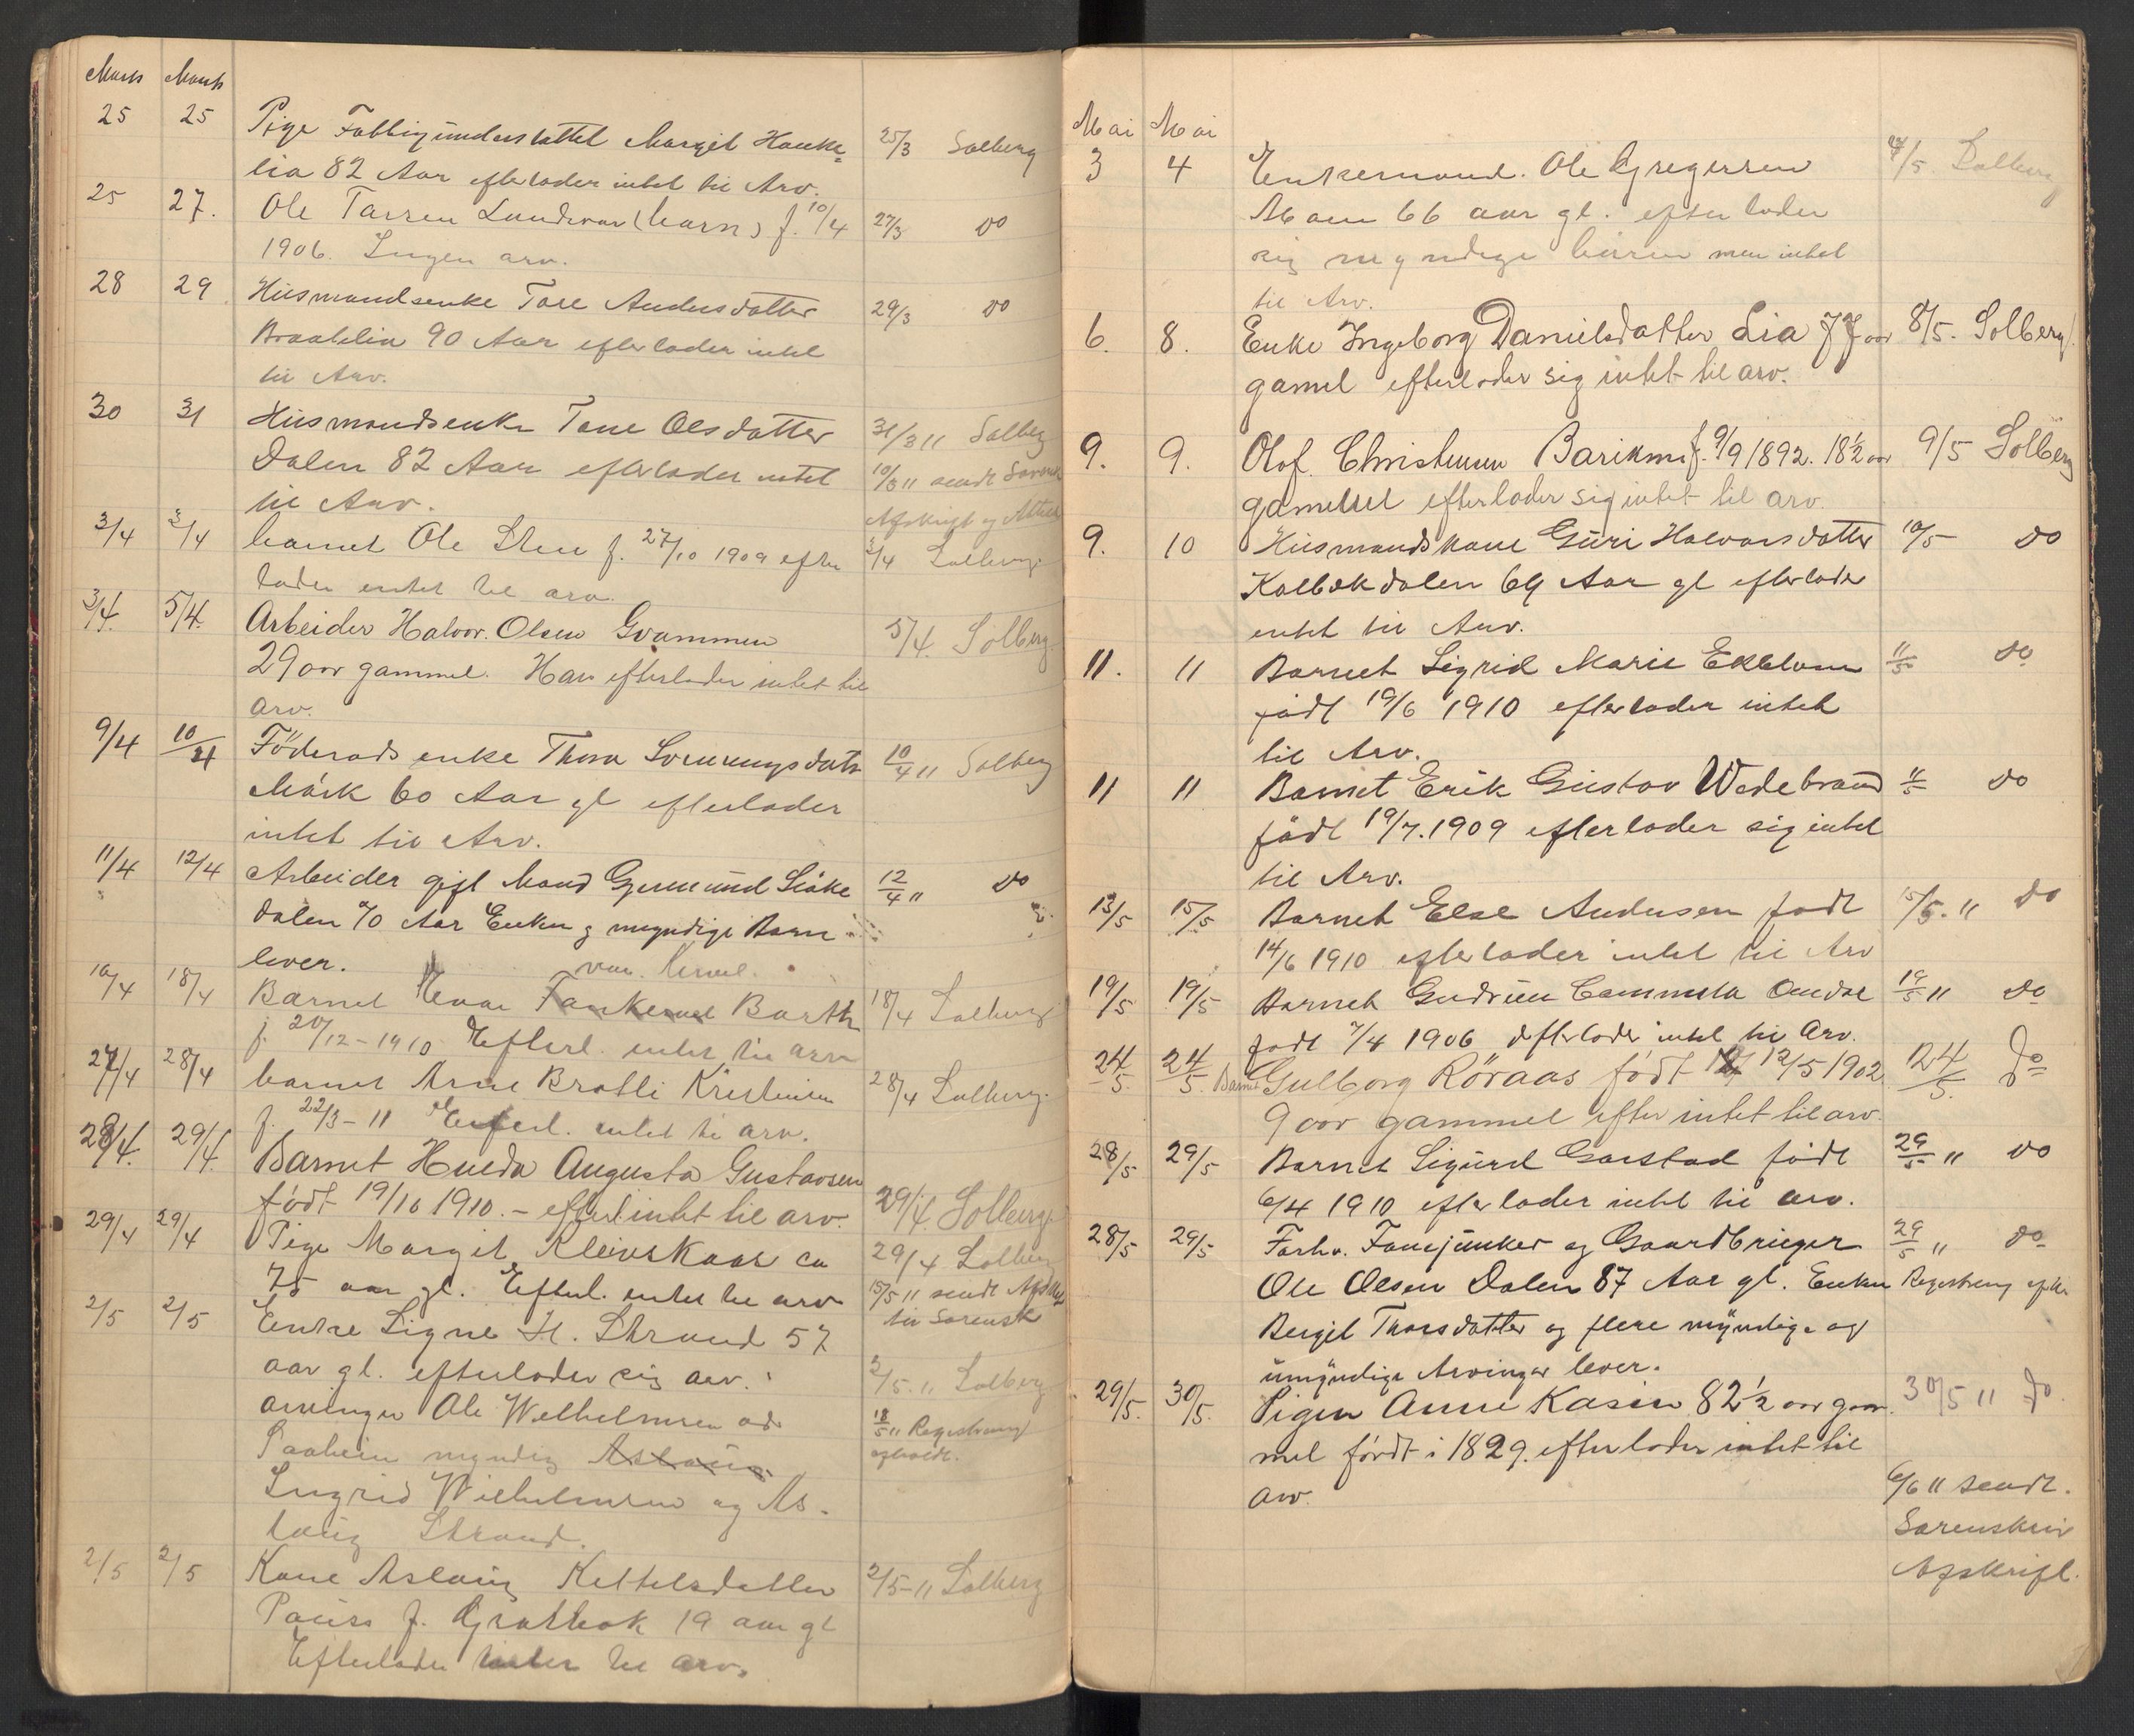 Marts Marts
25 25 Pige Fattigunderstøttet Margit Hauke= 25/3 Solberg
lia 82 Aar efterlader intet til Arv.
25 27. Ole Tarren Lundevar (barn) f. 10/4 27/3 do
1906. Ingen arv.
28 29 Husmandsenke Tore Andersdatter 29/3 do
Braatelia 90 Aar efterlader intet
til Arv.
30 31 Husmandsenke Tone Olsdatter 31/3 11 Solberg
Dalen 82 Aar efterlader intet 10/5 11 sendt Sorensk
til Arv. Afskrift og Attest
3/4 3/4 barnet Ole Sten f. 27/10 1909 efter 3/4 Solberg
lader intet til arv.
3/4. 5/4. Arbeider Halvor. Olsen Gvammen 5/4. Solberg.
29 aar gammel. Han efterlader intet til
arv.
9/4 10/4 Föderads enke Thora Sveinungsdatr 10/4 11 Solberg
Mårk 60 Aar gl efterlader
intet til Arv.
11/4 12/4 Arbeider gift Mand Gjermund
dalen 70 Aar Enken og myndige Barn
lever.
18/4 Barnet Einar Barth 18/4 Solberg
f. 20/12-1910 Efterl. intet til arv
27/4 28/4 barnet Arne Bratli Kristensen 28/4 Solberg.
f. 22/3-11 Efterl. intet til arv.
28/4. 29/4. Barnet Hulda Augusta Gustavsen
født 19/10 1910. - efterl intet til arv. 29/4. Solberg.
29/4 29/4 Pige Margit Kleivskaas ca 29/4 Solberg
75 aar gl. Efterl. intet til arv 15/5 11 sendt Afskrift
til Sorensk
2/5 2/5 Enke Signe H. Strand 57
aar gl. efterlader sig arv. 2/5. 11 Solberg
arvinger Ole Wilhelmsen adr 18/5 11 Registrering
Saaheim myndig Aslaug afholdt.
Ingrid Wilhelmsen og As-
laug Strand.
2/5 2/5 Kone Aslaug Kettelsdatter 2/5-11 Solberg
Pauss f. Grasbæk 19 aar gl
Efterlader intet til arv.
Mai Mai
3 4 Enkemand. Ole Gregersen 4/5. Solberg
Moen 66 aar gl. efterlader
sig myndige børn men intet
til Arv.
6. 8. Enke Ingeborg Danielsdatter Lia 77 aar 8/5. Solberg.
gamel efterlader sig intet til arv.
9. 9. Olof. Christensen f. 9/9 1892. 18½ aar 9/5 Solberg
gammel efterlader sig intet til arv.
9. 10 Husmandskone Guri Halvorsdatter 10/5 do
Kolbækdalen 69 Aar gl efterlader
intet til Arv.
11. 11 Barnet Sigrid Marie Ekblom 11/5 do
født 19/6 1910 efterlader intet
til Arv.
11 11 Barnet Erik Gustav Wedebrand 11/5 do
født 19/7. 1909 efterlader sig intet
til Arv.
13/5 15/5 Barnet Else Andersen født 15/5. 11 do
14/6 1910 efterlader intet til Arv
19/5 19/5 Barnet Gudrun Cammilla Omdal 19/5 11 do
født 7/4 1906 efterlader intet til Arv.
24/5. 24/5. Barnet Gulborg Röraas født 12/5 1902 24/5. Do
9 aar gammel efter intet til arv.
28/5 29/5 Barnet Sigurd Garstad født 29/5 11 do
6/4 1910 efterlader intet til arv.
28/5 29/5 Forhv. Fanejunker og Gaardbruger 29/5 11 do
Ole Olsen Dalen 87 Aar gl. Enken Registrering
Bergit Thorsdatter og flere myndige og
umyndige Arvinger lever.
29/5. 30/5. Pigen Anne Kasin 82½ aar gam- 30/5 11 Do.
mel født i 1829. efterlader intet til
arv.
6/6 11 sendt.
Sorenskriv
Afskrift.